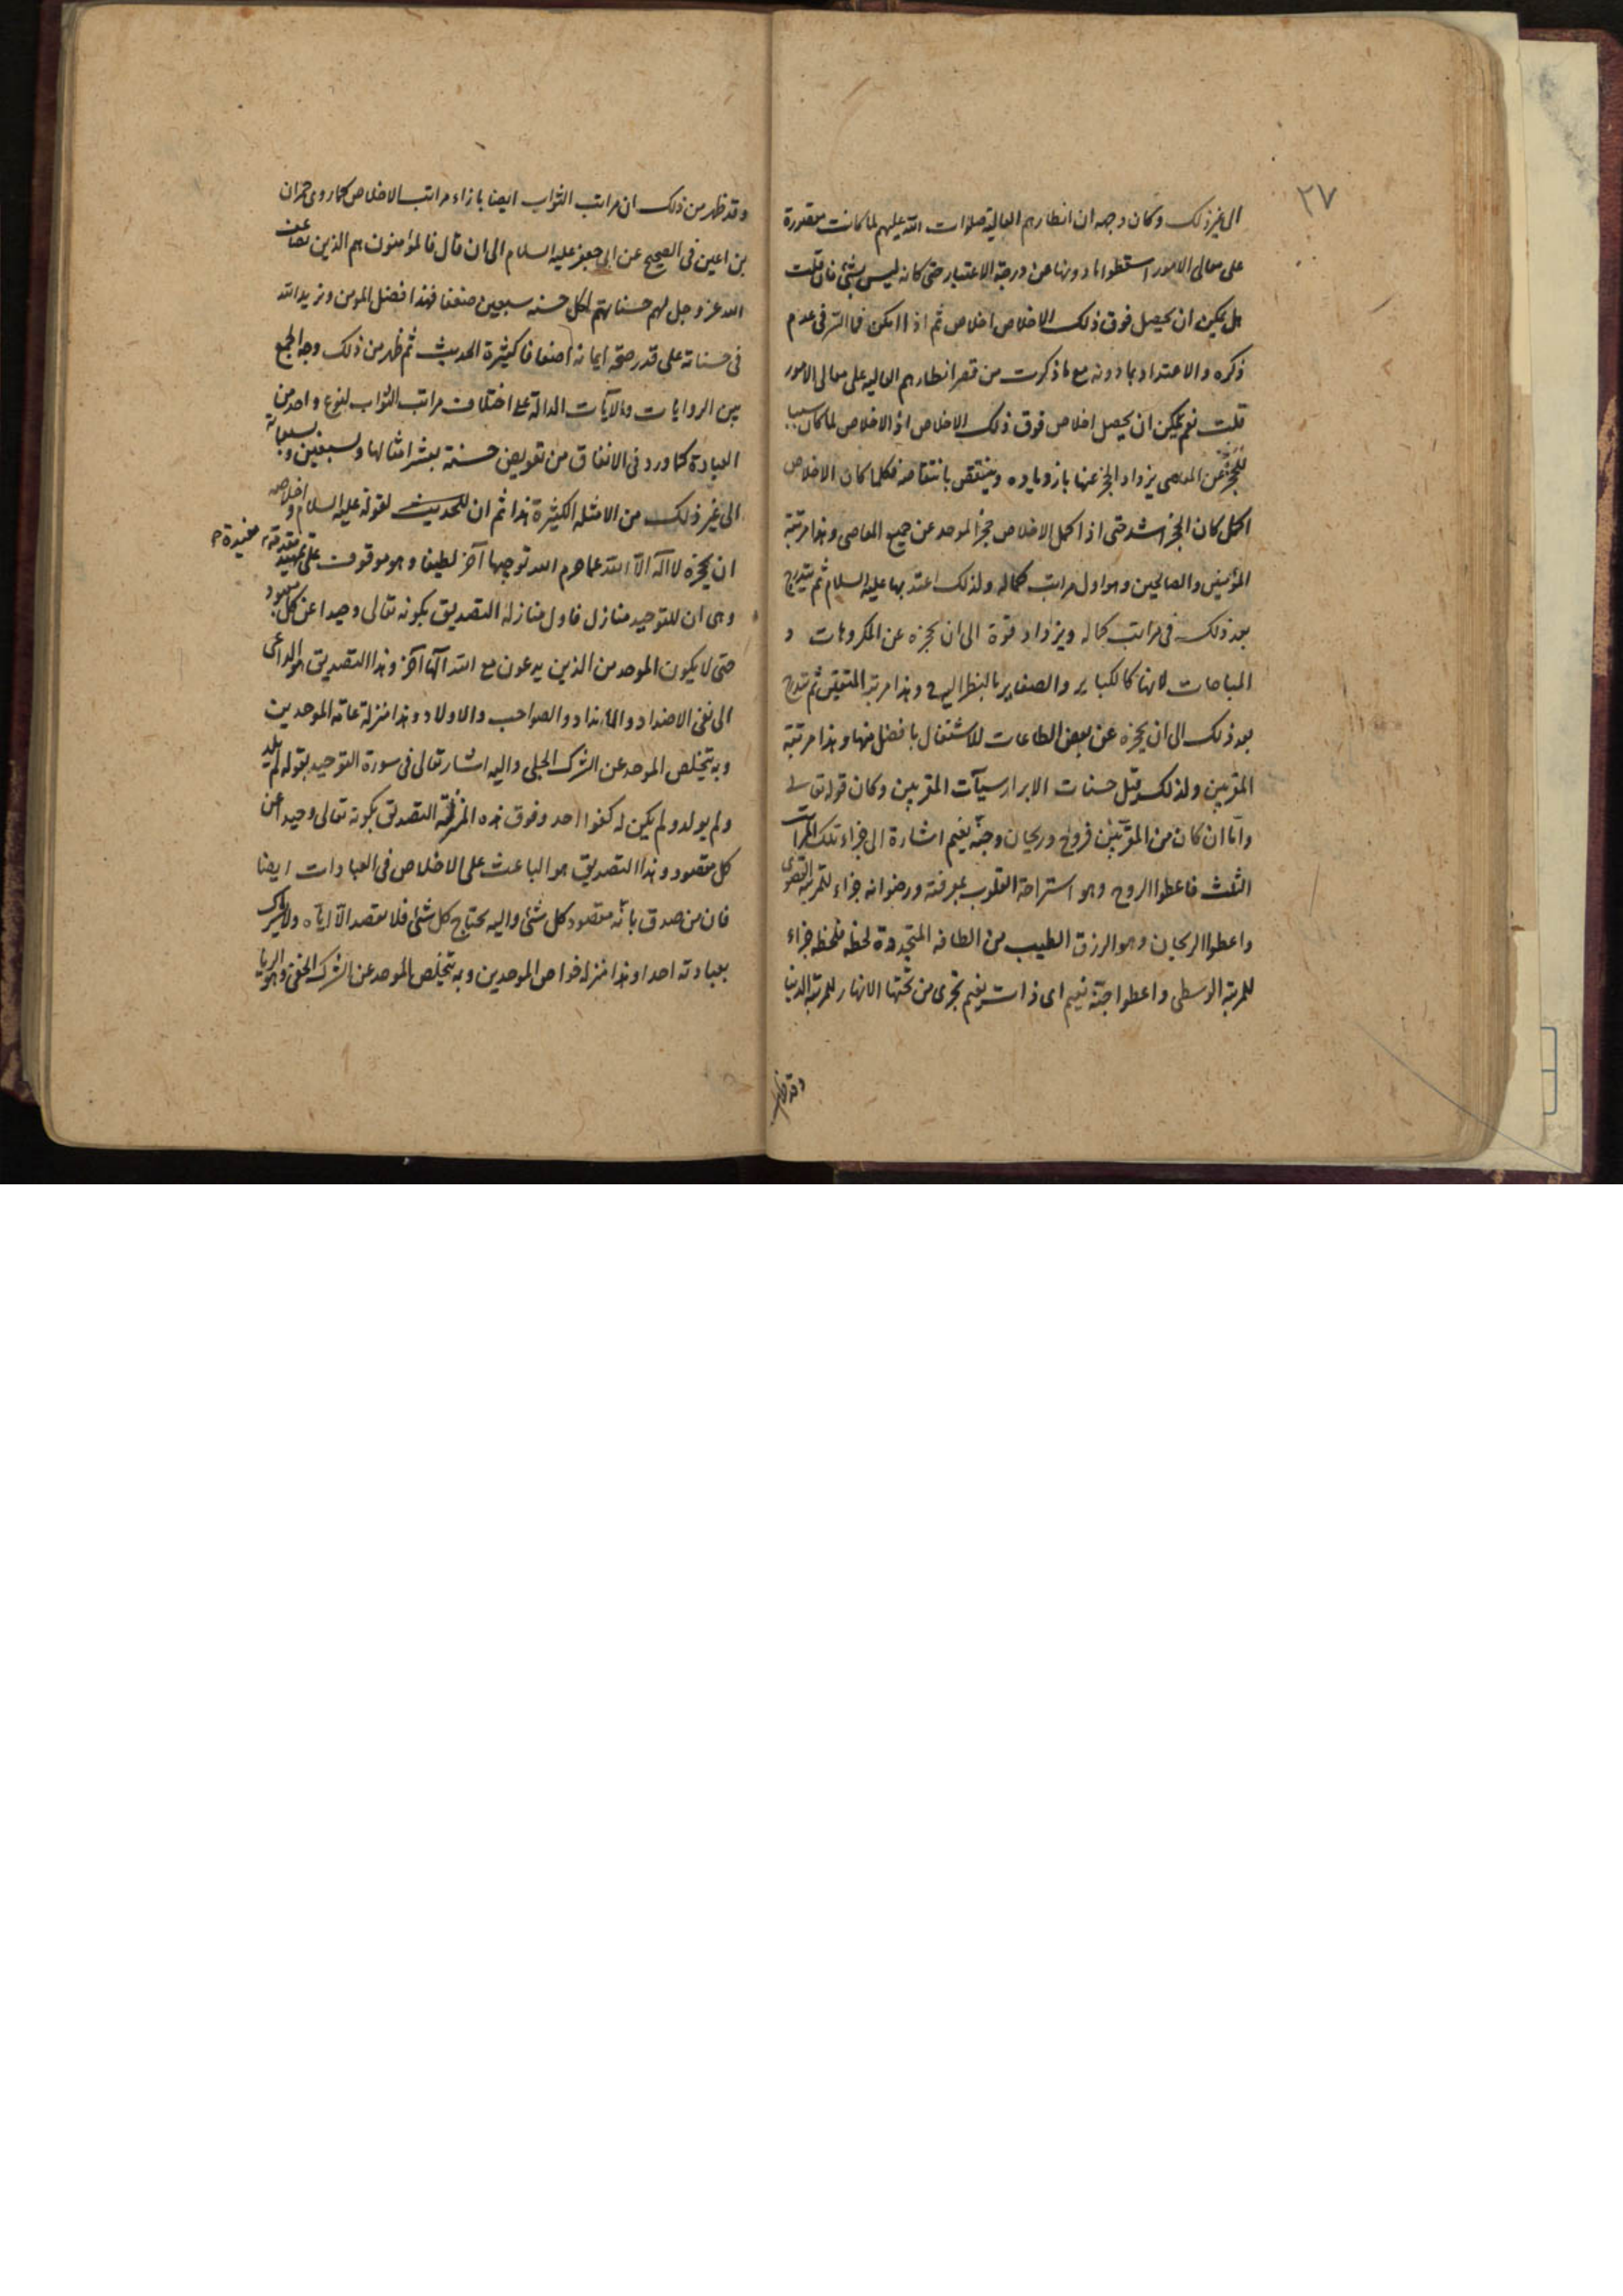 ٢٧
الى غير ذلك وكان وجهه ان انظارهم العالية صلوات الله عليهم لما كانت مقصورة
على معالى الامور اسقطوا ما دونها عن درجة الاعتبار حتى كانه ليس بشئ فان قلت
هل يمكن ان يحصل فوق ذلك الاخلاص اخلاص ثم اذا امكن فما السر فى عدم
ذكره والاعتداد بما دونه مع ما ذكرت من قصر انظارهم العاليه على معالى الامور
قلت نعم يمكن ان يحصل اخلاص فوق ذلك الاخلاص اذ الاخلاص لما كان سببا
للحجز عن المعاصى يزداد الحجز عنها بازدياده وينتقص بانتقاصه فكلما كان الاخلاص
اكمل كان الحجز اشد حتى اذا كمل الاخلاص حجز الموحد عن جميع المعاصى وهذا مرتبة
المؤمنين والصالحين وهو اول مراتب كماله ولذلك اعتد بها عليه السلام ثم يتدرج
بعد ذلك فى مراتب كماله ويزداد قوة الى ان يحجزه عن المكروهات و
المباحات لانها كالكباير والصغاير بالنظر اليهم وهذا مرتبة المتقين ثم يتدرج
بعد ذلك الى ان يحجزه عن بعض الطاعات للاشتغال بافضل منها وهذا مرتبة
المقربين ولذلك قيل حسنات الابرار سيآت المقربين وكان قوله تعالى
وأما ان كان من المقربين فروح وريحان وجنة نعيم اشارة الى جزاء تلك المراتب
الثلث فاعطوا الروح وهو استراحة القلوب بمعرفته ورضوانه جزاء للمرتبة القصوى
واعطوا الريحان وهو الرزق الطيب من الطافه المتجددة لحظه فلحظه جزاء
للمرتبة الوسطى واعطوا جنة نعيم اى ذات نعيم تجرى من تحتها الانهار للمرتبة الدنيا
وقد ظهر
وقد ظهر من ذلك ان مراتب الثواب ايضا بازاء مراتب الاخلاص كما روى حمران
بن اعين فى الصحيح عن ابى جعفر عليه السلام الى ان قال فالمؤمنون هم الذين يضاعف
الله عز وجل لهم حسناتهم لكل حسنه سبعين ضعفا فهذا فضل المومن ويزيد الله
فى حسناته على قدر صحة ايمانه اضعافا كثيرة الحديث ثم ظهر من ذلك وجه الجمع
بين الروايات والآيات الدالة على اختلاف مراتب الثواب لنوع واحد من
العبادة كما ورد فى الانفاق من تعويض حسنة بعشر امثالها وسبعين وسبعمائة
الى غير ذلك من الامثله الكثيرة هذا ثم ان للحديث لقوله عليه السلام واخلاصه
ان يحجزه لا آله الا الله عما حرم الله توجيها آخر لطيفا وهو موقوف على تمهيد مقدمة مفيدة
وهى ان للتوحيد منازل فاول منازله التصديق بكونه تعالى وحيدا عن كل معبود
حتى لا يكون الموحد من الذين يدعون مع الله آلها آخر وهذا التصديق هو الداعى
الى نفى الاضداد والانداد والصواحب والاولاد وهذا منزلة عامة الموحدين
وبه يتخلص الموحد عن الشرك الجلى واليه اشار تعالى فى سورة التوحيد بقوله لم يلد
ولم يولد ولم يكن له كفوا احد وفوق هذه التصديق بكونه تعالى وحيدا عن
كل مقصود وهذا التصديق هو الباعث على الاخلاص فى العبادات ايضا
فان من صدق بانه مقصود كل شئ واليه يحتاج كل شئ فلا يقصد الا اياه ولا يشرك
بعبادته احدا وهذا منزله خواص الموحدين وبه يتخلص الموحد عن الشرك الخفى وهو الريا